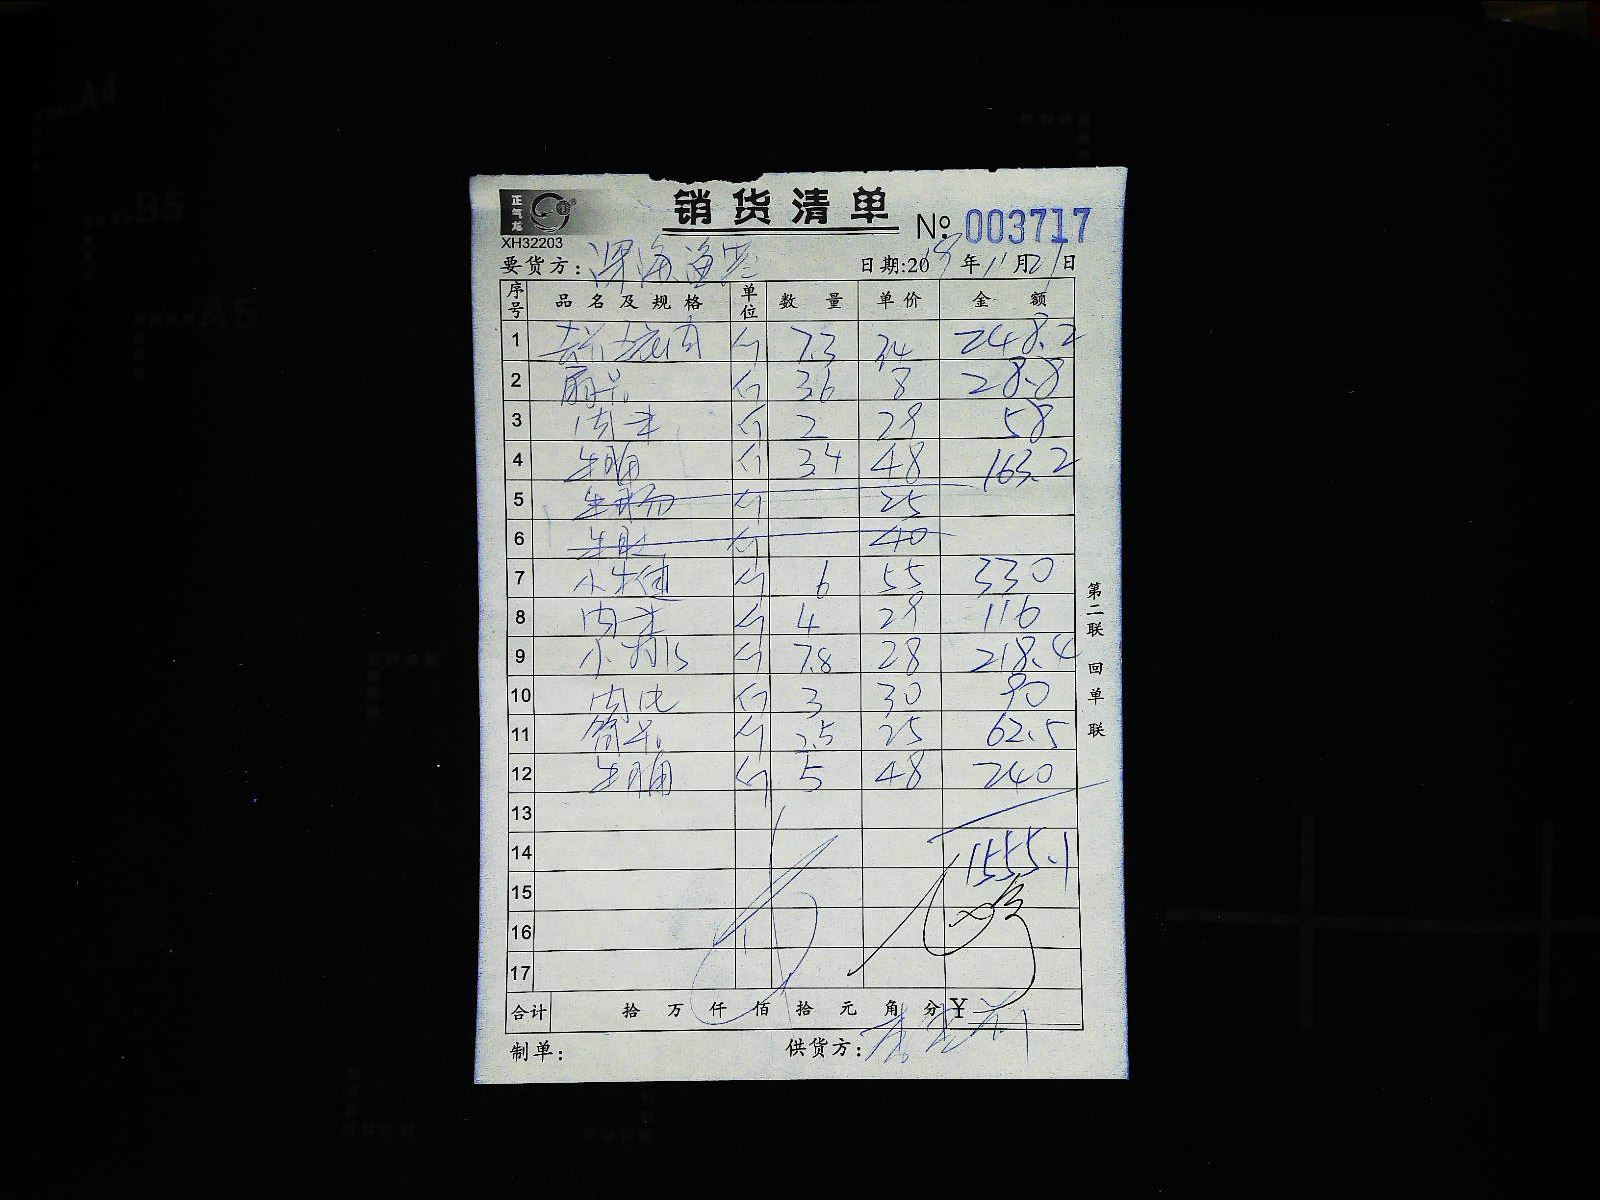 正气龙
XH32203
销货清单
№ 003717
要货方：深海渔 日期:2019年11月21日
序号 品名及规格 单位 数量 单价 金额
1 去皮五花肉 斤 7.3 34 248.2
2 扇骨 斤 3.6 8 28.8
3 肉末 斤 2 29 58
4 牛腩 斤 3.4 48 163.2
5 牛肠 斤 25
6 牛肚 斤 40
7 小牛健 斤 6 55 330
8 肉末 斤 4 29 116
9 小排 斤 7.8 28 218.4
10 肉 斤 3 30 90
11 筒骨 斤 2.5 25 62.5
12 牛腩 斤 5 48 240
13
14 1555.1
15
16
17
合计 拾 万 仟 佰 拾 元 角 分 ¥
制单： 供货方：
第二联 回单联
A4
B5
A5